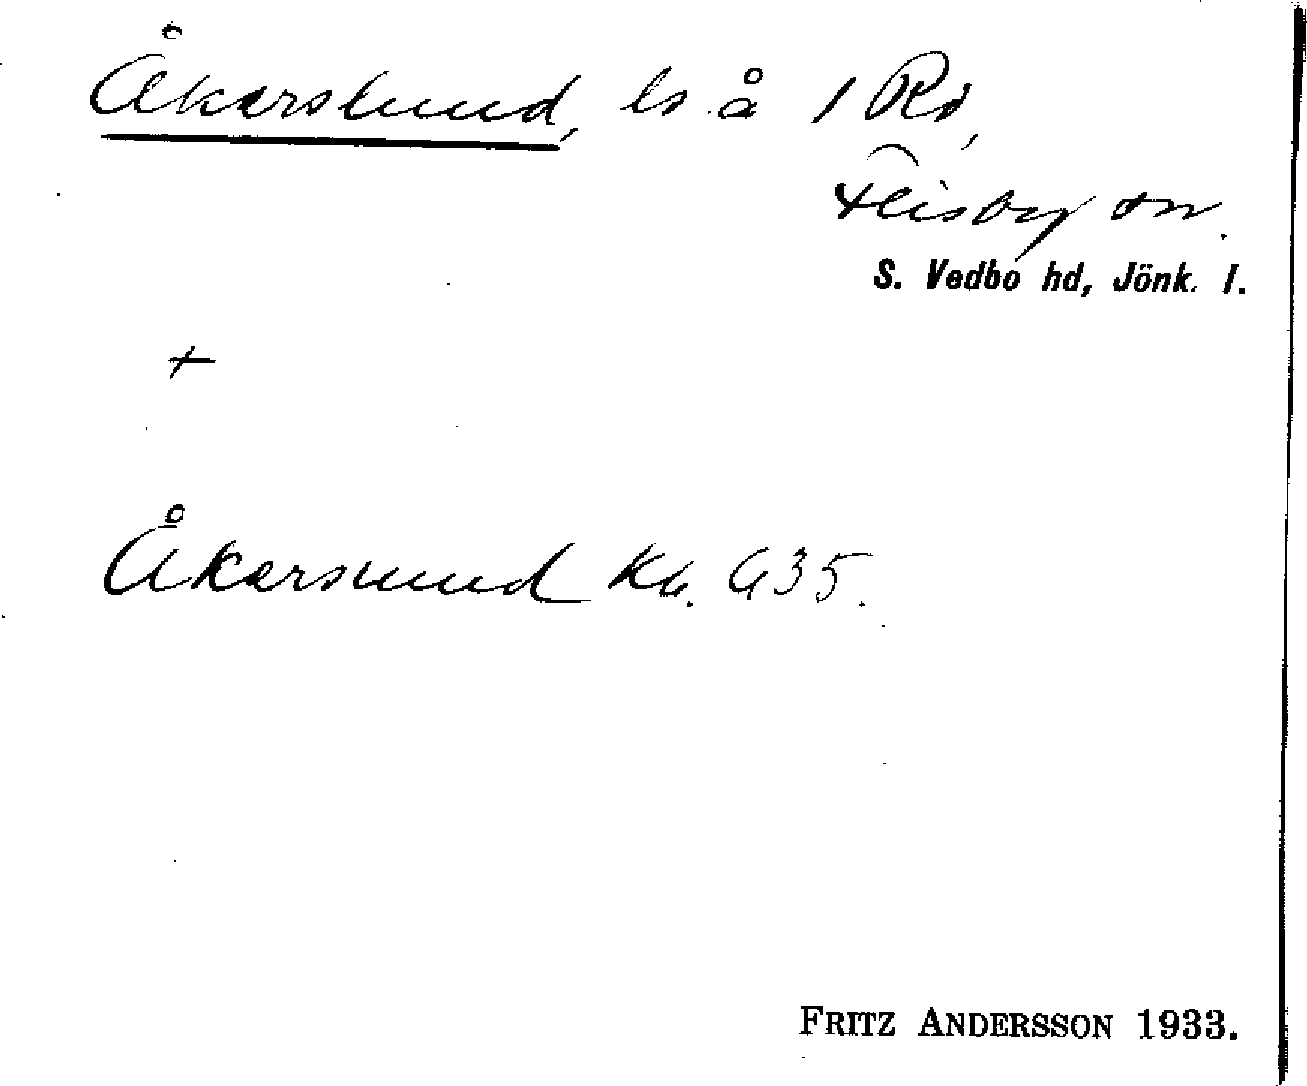 Åkerslund, ls å 1 Rd,
Flisby sn.
S. Vedbo hd, Jönk. l.
+
Åkerslund Kb. G35.
FRITZ ANDERSSON 1933.